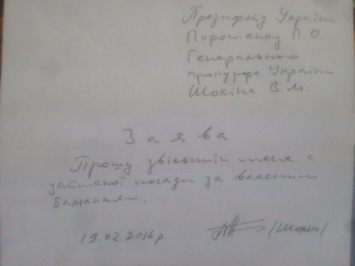 Президенту України
Порошенку П.О.
Генерального
прокурора України
Шокіна В.М.
Заява
Прошу звільнити мене с
займаної посади за власним
бажанням.
19.02.2016р. /Шокін/